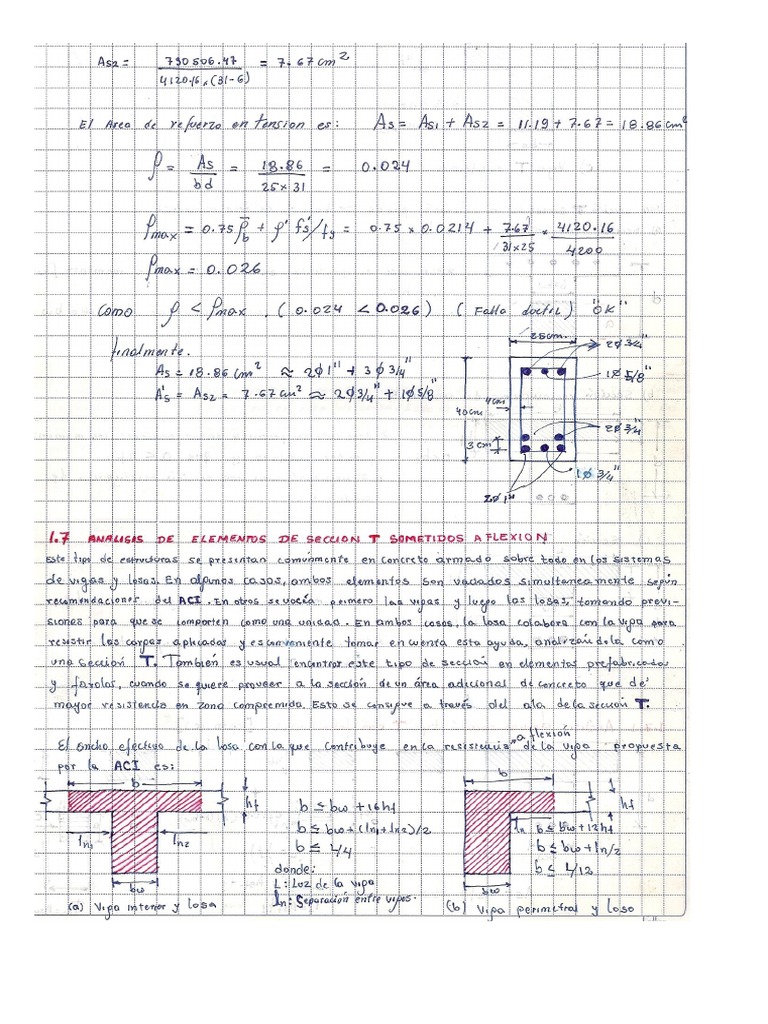 As2 = 790506.47 / 4120.16 x (31-6) = 7.67 cm²
El Area de refuerzo en tension es: As = As1 + As2 = 11.19 + 7.67 = 18.86 cm²
ρ = As / bd = 18.86 / 25x31 = 0.024
ρmax = 0.75 ρ̄b + ρ' f's/fy = 0.75 x 0.0214 + 7.67 / 31x25 x 4120.16 / 4200
ρmax = 0.026
Como ρ < ρmax . (0.024 < 0.026) (Falla ductil) "OK"
finalmente.
As = 18.86 cm² ≈ 2φ1" + 3φ3/4"
A's = As2 = 7.67 cm² ≈ 2φ3/4" + 1φ5/8"
25cm.
2φ3/4"
1φ5/8"
4cm
40cm.
2φ3/4"
3cm
1φ3/4"
2φ1"
1.7 ANALISIS DE ELEMENTOS DE SECCION T SOMETIDOS A FLEXION
Este tipo de estructuras se presentan comunmente en concreto armado sobre todo en los sistemas
de vigas y losas. En algunos casos, ambos elementos son vaciados simultaneamente según
recomendaciones del ACI. En otros se vacía primero las vigas y luego las losas, tomando previ-
siones para que se comporten como una unidad. En ambos casos, la losa colabora con la viga para
resistir las cargas aplicadas y es conveniente tomar en cuenta esta ayuda, analizándola como
una sección T. También es usual encontrar este tipo de sección en elementos prefabricados
y farolas, cuando se quiere proveer a la sección de un área adicional de concreto que de
mayor resistencia en zona comprimida. Esto se consigue a través del ala de la sección T.
El ancho efectivo de la losa con la que contribuye en la resistencia a flexión de la viga propuesta
por la ACI es:
b
hf
ln1
ln2
bw
b ≤ bw + 16hf
b ≤ bw + (ln1 + ln2)/2
b ≤ L/4
donde:
L: Luz de la viga
ln: Separación entre vigas.
(a) Viga interior y losa
b
hf
ln
b ≤ bw + 12hf
b ≤ bw + ln/2
b ≤ L/12
bw
(b) Viga perimetral y losa